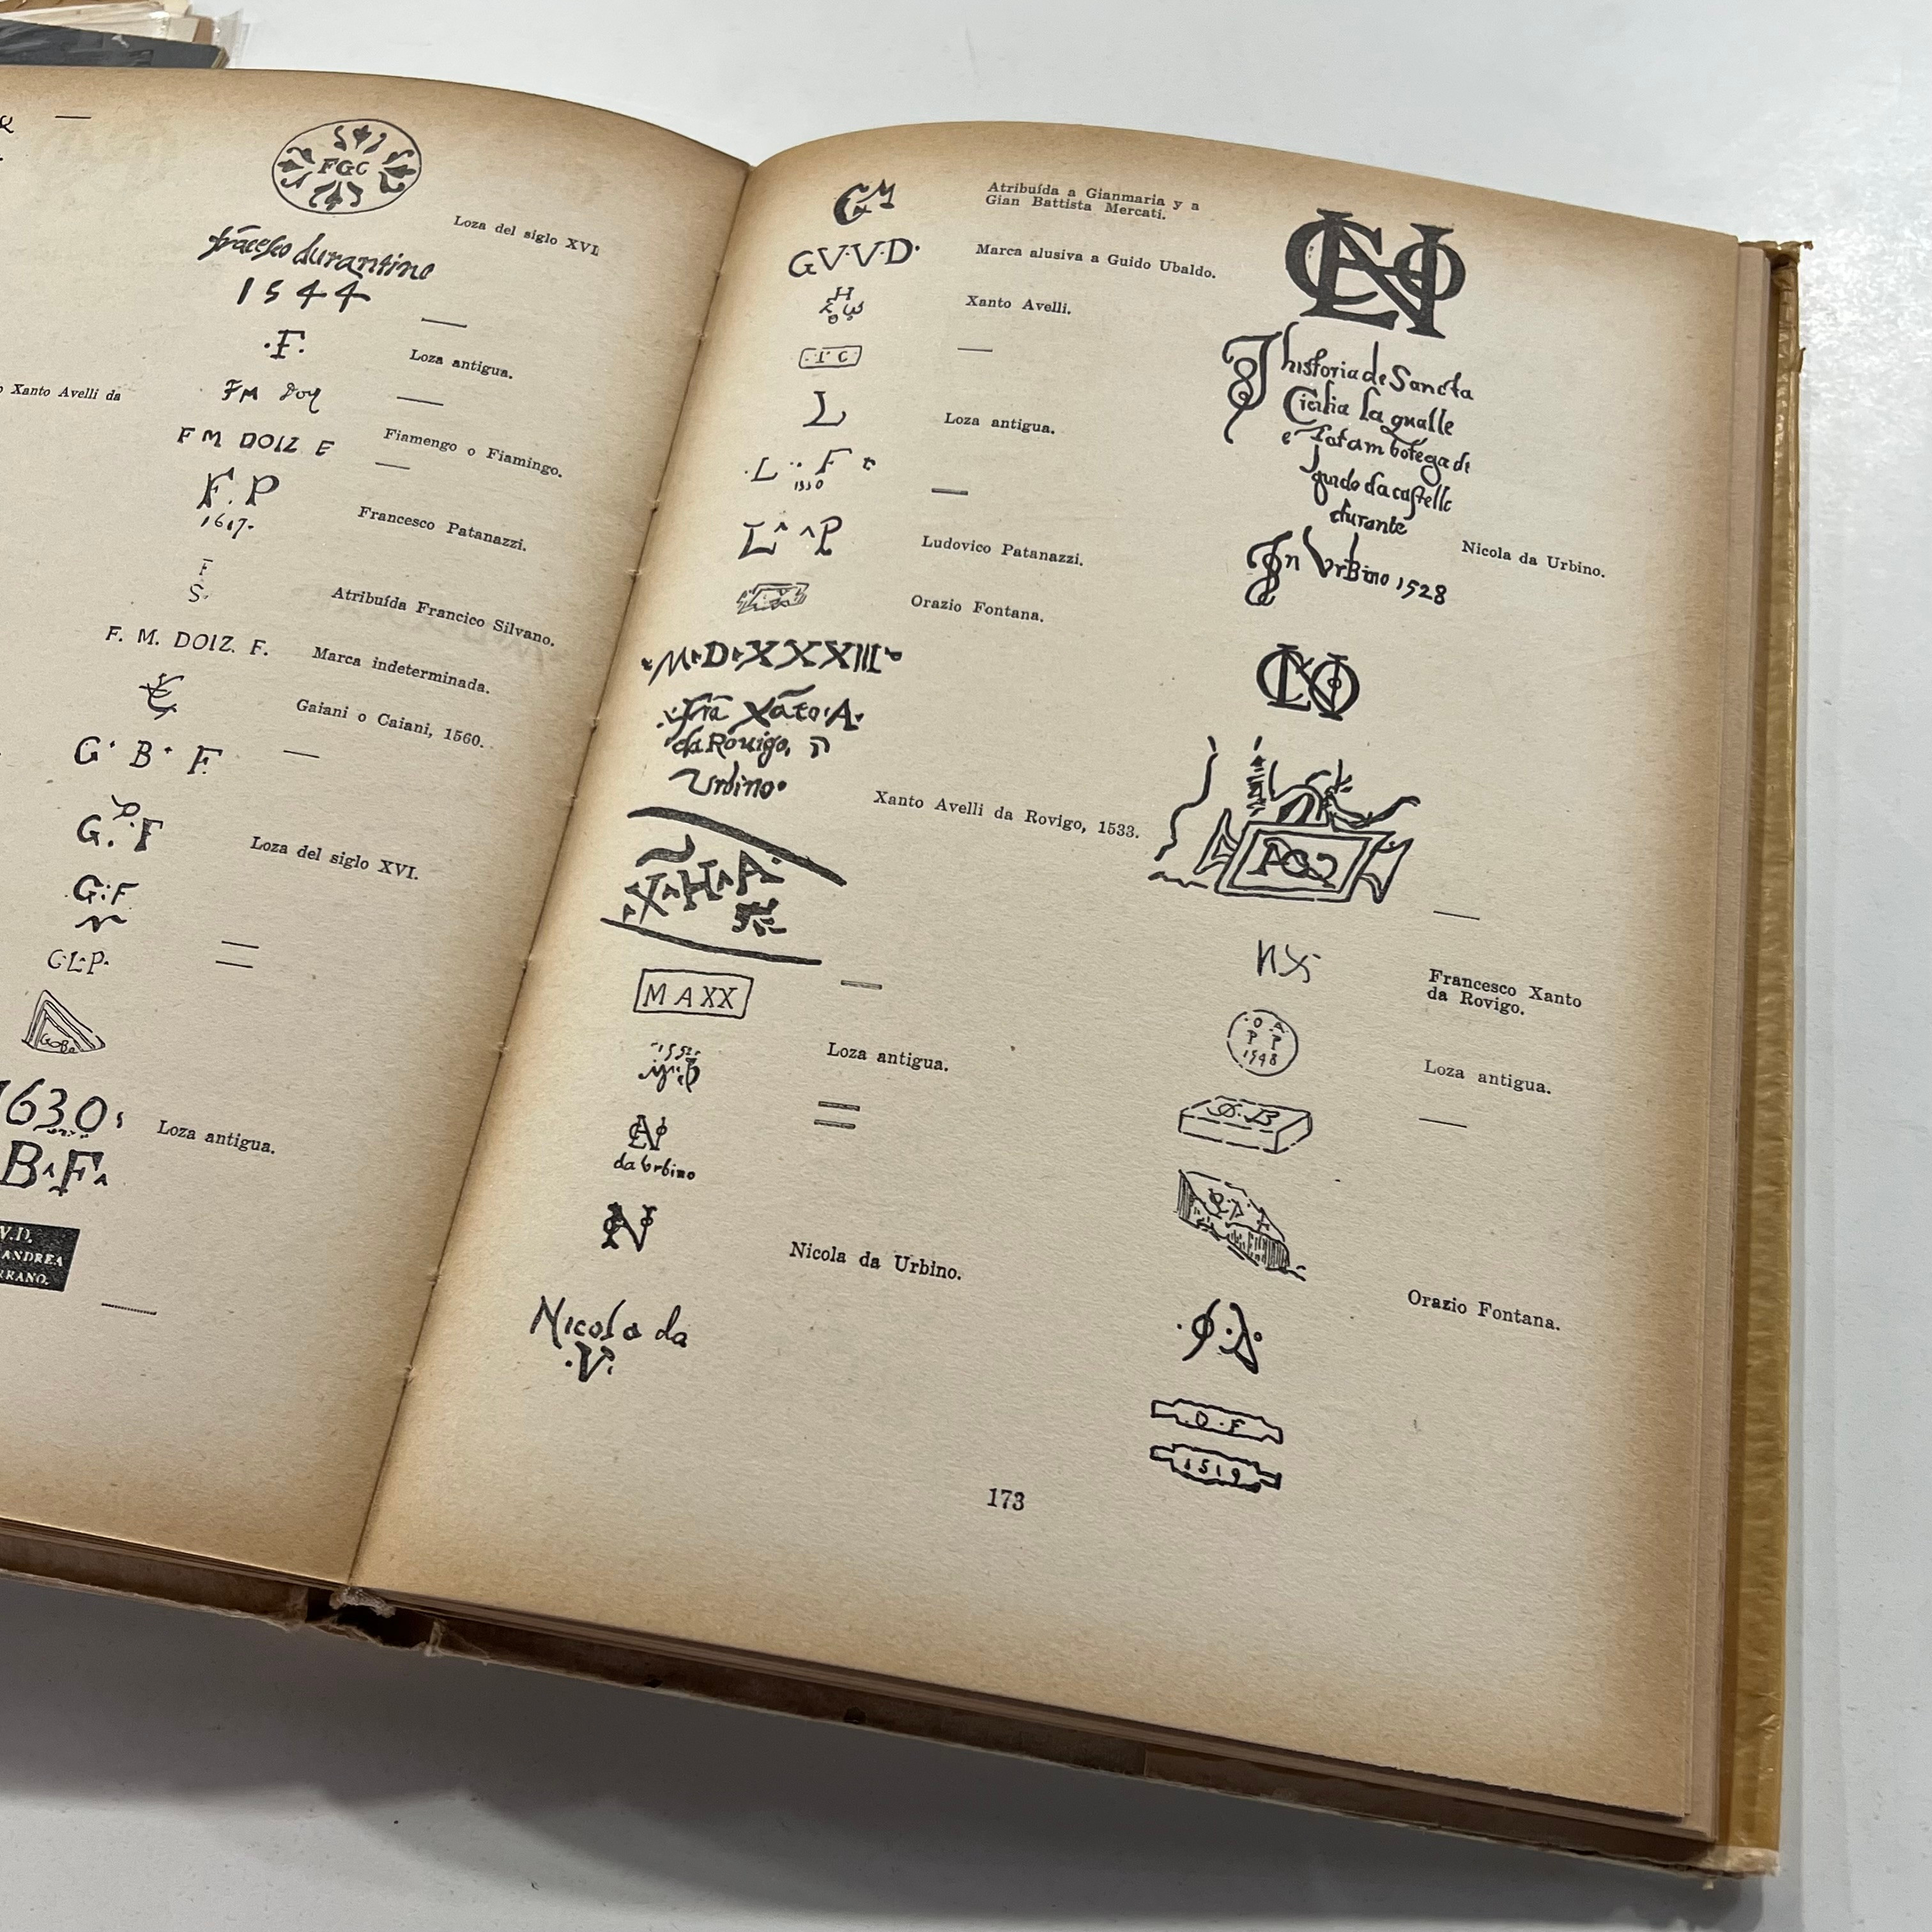 Xanto Avelli da
FGC
Loza del siglo XVI
durantino
1544
·F·
Loza antigua.
FM
F M DOIZ E
Fiamengo o Fiamingo.
F. P
1617·
Francesco Patanazzi.
F
S·
Atribuída Francico Silvano.
F. M. DOIZ. F.
Marca indeterminada.
Gaiani o Caiani, 1560.
G· B· F
G. F
Loza del siglo XVI.
G:F
G·L·P·
1630
Loza antigua.
B·F·
V.D.
ANDREA
RRANO.
Atribuída a Gianmaria y a
Gian Battista Mercati.
GV·V·D·
Marca alusiva a Guido Ubaldo.
Xanto Avelli.
L
Loza antigua.
·L ·· F
1550
L P
Ludovico Patanazzi.
Orazio Fontana.
·M·D·XXXIII·
Frã Xãto·A·
da Rouigo,
Urbino·
Xanto Avelli da Rovigo, 1533.
X·H·A·
MAXX
Loza antigua.
da Urbino
N
Nicola da Urbino.
Nicola da
·V·
historia de Sancta
Cicilia la qualle
botega di
guido da castello
durante
In Urbino 1528
Nicola da Urbino.
Francesco Xanto
da Rovigo.
O A
P P
1548
Loza antigua.
Orazio Fontana.
1519
173